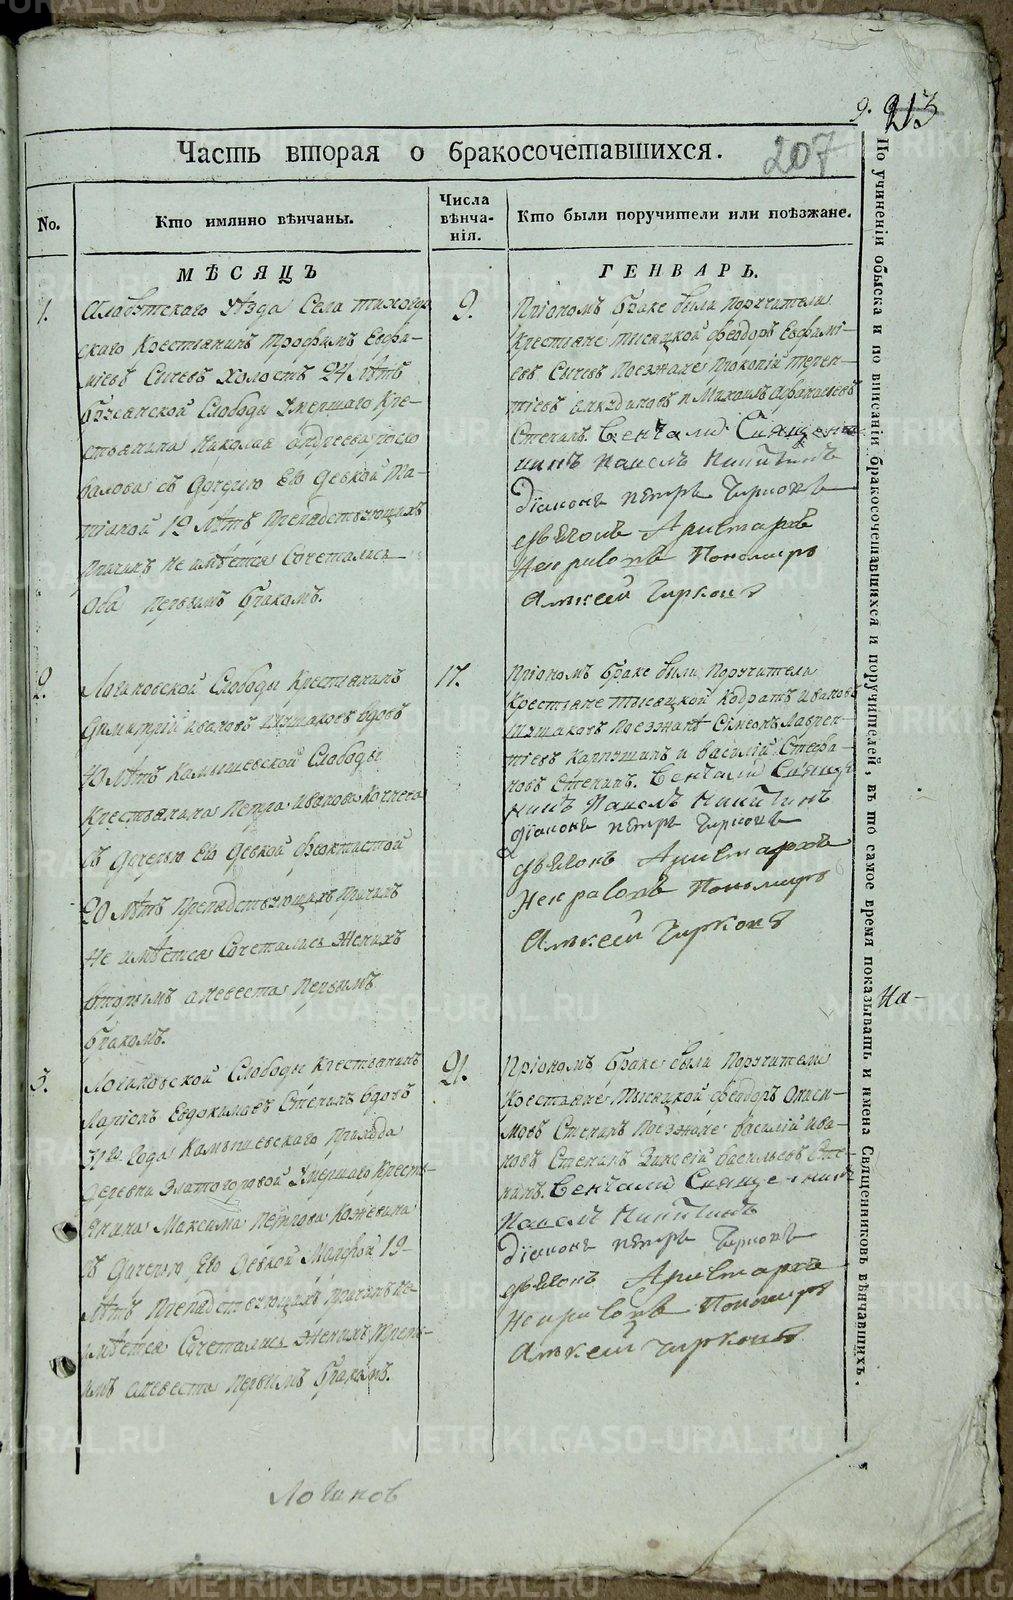 9. 213
Часть вторая о бракосочетавшихся.
207
No.
Кто имянно вѣнчаны.
Числа вѣнча-нія.
Кто были поручители или поѣзжане.
МѢСЯЦЪ
ГЕНВАРЬ.
1.
уѣзда Села
скаго Крестьянинъ Трофимъ Евфи-
міевъ Сычевъ холостъ 24 лѣтъ
Слободы умершаго Кре-
стьянина Николая Андреева
съ дочерью Ево девкой Та-
тіаной 19 лѣтъ Препядствующихъ
Причинъ не имѣется Сочетались
Оба первымъ бракомъ.
9.
Пріономъ браке были Поручители
Крестьяне тысяцкой Феодоръ Евфимі-
евъ Сычевъ Поезжане Прокопій Терен-
тіевъ и Михаилъ Афанасьевъ
Степанъ. Венчали Священ
никъ Павелъ Никитинъ
Діаконъ Петръ Чирковъ
дьячокъ Аристархъ
Некрасовъ Пономарь
Алексей Чирковъ
2.
Логиновской Слободы Крестьянинъ
Димитрій Ивановъ вдовъ
40 лѣтъ Камышевской Слободы
Крестьянина Петра Иванова Кочнева
съ дочерью Ево девкой Феоктистой
20 лѣтъ Препядствующихъ Причинъ
Не имѣется Сочетались Женихъ
вторымъ а невеста первымъ
бракомъ.
17.
Пріономъ браке были Поручители
Крестьяне тысяцкой Кодратъ Ивановъ
Поезжанѣ Сімеонъ Лаврен-
тіевъ и Василій Стефа-
новъ Степанъ. Венчали Свящ
никъ Павелъ Никитинъ
Діаконъ Петръ Чирковъ
дьячокъ Аристархъ
Некрасовъ Пономарь
Алексей Чирковъ
3.
Логиновской Слободы Крестьянинъ
Ларіонъ Евдокимовъ Степанъ вдовъ
года Камышевскаго Прихода
деревни Златогоровой умершаго Кресть-
янина Максима Петрова Кожевина
съ дочерью Ево девкой Марфой 19
лѣтъ Препядствующихъ причинъ не
имѣется Сочетались Женихъ Треть-
имъ а невеста первымъ бракомъ.
21.
Пріономъ браке были Поручители
Крестьяне Тысяцкой Феодоръ Ониси-
мовъ Степанъ Поезжане Василій Ива-
новъ Степанъ Васильевъ Сте-
панъ. Венчали Священникъ
Павелъ Никитинъ
Діаконъ Петръ Чирковъ
дьячокъ Аристархъ
Некрасовъ Пономарь
Алексей Чирковъ
По учиненіи обыска и по вписаніи бракосочетавшихся и поручителей, въ то самое время показывать и имена Священниковъ вѣнчавшихъ.
На-
Логинов
METRIKI.GASO-URAL.RU